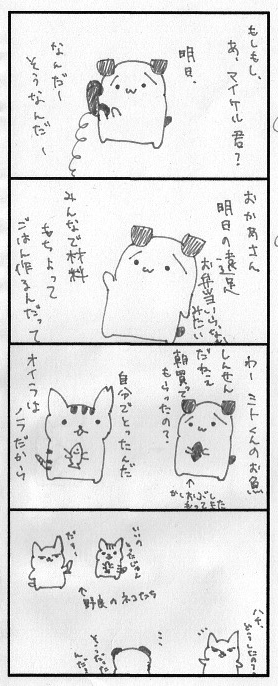 もしもし、
あ、マイケル君？
明日、
なんだー
そうなんだ〜
おかあさん
明日の遠足
お弁当いらない
みたい
みんなで材料
もちよって
ごはん作るんだって
わーミトくんのお魚
しんせん
だねえ
朝買って
もらったの？
かつおぶし
もってきた
自分でとったんだ
オイラは
ノラだから
ハチ、
どうしたの？
いいの
だー
↑野良のネコたち
そうだった
んだ